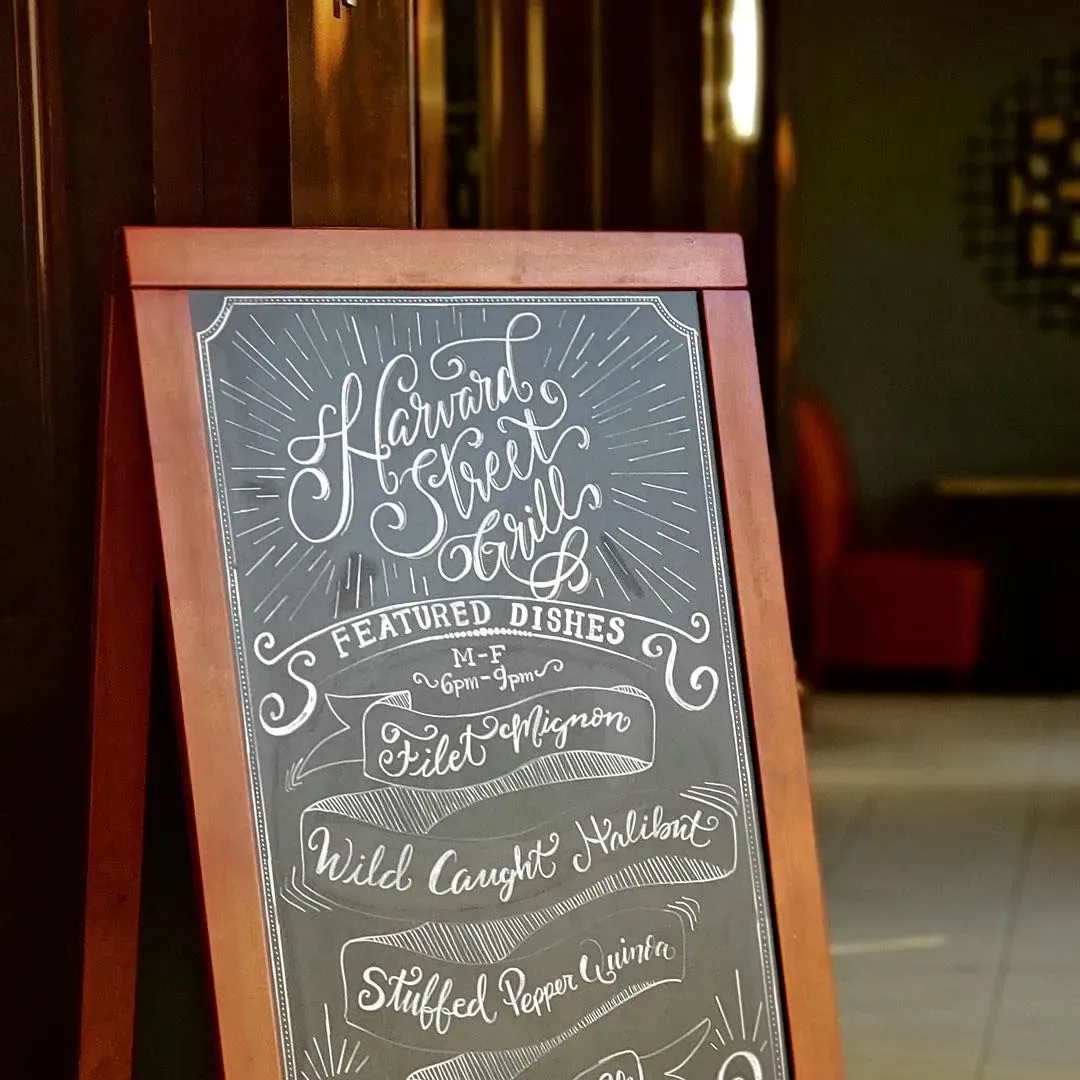 Harvard
Street
Grill
FEATURED DISHES
M-F
~6pm-9pm~
Filet Mignon
Wild Caught Halibut
Stuffed Pepper Quinoa